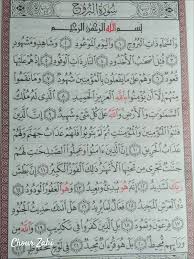 سُورَةُ الْبُرُوجِ
بِسْمِ اللَّهِ الرَّحْمَٰنِ الرَّحِيمِ
وَالسَّمَاءِ ذَاتِ الْبُرُوجِ ١ وَالْيَوْمِ الْمَوْعُودِ ٢ وَشَاهِدٍ وَمَشْهُودٍ
٣ قُتِلَ أَصْحَابُ الْأُخْدُودِ ٤ النَّارِ ذَاتِ الْوَقُودِ ٥ إِذْ هُمْ عَلَيْهَا
قُعُودٌ ٦ وَهُمْ عَلَىٰ مَا يَفْعَلُونَ بِالْمُؤْمِنِينَ شُهُودٌ ٧ وَمَا نَقَمُوا
مِنْهُمْ إِلَّا أَنْ يُؤْمِنُوا بِاللَّهِ الْعَزِيزِ الْحَمِيدِ ٨ الَّذِي لَهُ مُلْكُ
السَّمَاوَاتِ وَالْأَرْضِ وَاللَّهُ عَلَىٰ كُلِّ شَيْءٍ شَهِيدٌ ٩ إِنَّ الَّذِينَ
فَتَنُوا الْمُؤْمِنِينَ وَالْمُؤْمِنَاتِ ثُمَّ لَمْ يَتُوبُوا فَلَهُمْ عَذَابُ جَهَنَّمَ وَلَهُمْ
عَذَابُ الْحَرِيقِ ١٠ إِنَّ الَّذِينَ آمَنُوا وَعَمِلُوا الصَّالِحَاتِ لَهُمْ
جَنَّاتٌ تَجْرِي مِنْ تَحْتِهَا الْأَنْهَارُ ذَٰلِكَ الْفَوْزُ الْكَبِيرُ ١١ إِنَّ بَطْشَ
رَبِّكَ لَشَدِيدٌ ١٢ إِنَّهُ هُوَ يُبْدِئُ وَيُعِيدُ ١٣ وَهُوَ الْغَفُورُ الْوَدُودُ
١٤ ذُو الْعَرْشِ الْمَجِيدُ ١٥ فَعَّالٌ لِمَا يُرِيدُ ١٦ هَلْ أَتَاكَ حَدِيثُ الْجُنُودِ
١٧ فِرْعَوْنَ وَثَمُودَ ١٨ بَلِ الَّذِينَ كَفَرُوا فِي تَكْذِيبٍ ١٩ وَاللَّهُ مِنْ
وَرَائِهِمْ مُحِيطٌ ٢٠ بَلْ هُوَ قُرْآنٌ مَجِيدٌ ٢١ فِي لَوْحٍ
Chour Zahi